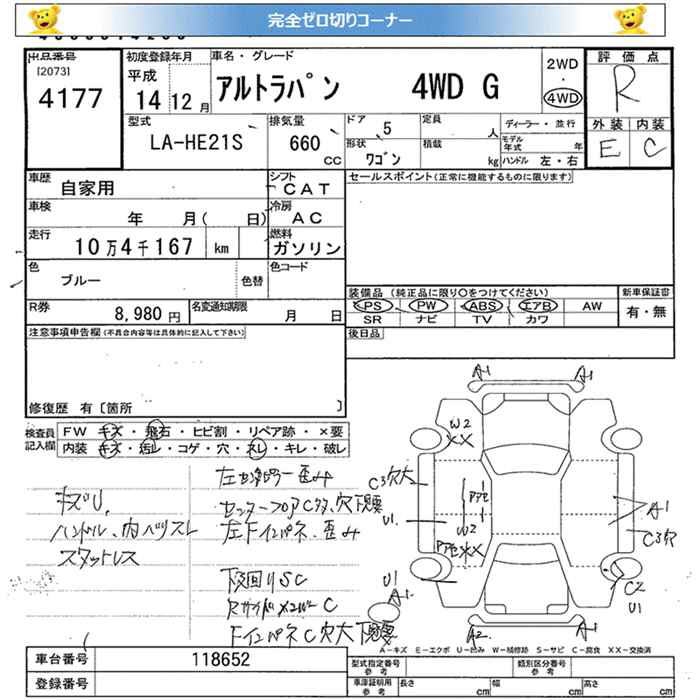 完全ゼロ切りコーナー
出品番号
[2073]
4177
初度登録年月
平成
14年12月
車名・グレード
アルトラパン 4WD G
2WD
・
4WD
評価点
R
外装 内装
E C
型式
LA-HE21S
排気量
660
CC
ドア
5
形状
ワゴン
定員
人
積載
kg
ディーラー・並行
モデル年式 年
ハンドル 左・右
車歴
自家用
シフト
CAT
車検
年 月( 日)
冷房
AC
走行
10万4千167 km
燃料
ガソリン
色
ブルー
色替
色コード
R券
8,980 円
名変通知期限
月 日
セールスポイント(正常に機能するものに限ります)
装備品(純正品に限り○をつけてください)
PS・PW・ABS・エアB・AW
SR ナビ TV カワ
新車保証書
有・無
後日品
注意事項申告欄(不具合内容等は具体的に記入して下さい)
修復歴 有〔箇所 〕
検査員
記入欄
FW キズ・飛石・ヒビ割・リペア跡・×要
内装 キズ・汚レ・コゲ・穴・ネレ・キレ・破レ
キズU,
ハンドル、内ハリスレ
スタットレス
センターフロアCタタ、穴下廻要
左下インパネ、歪み
下廻りSC
下インパネC穴大下廻要
A1
A1
W2
XX
C3穴大
U1
W2
XX
A1
C3穴
U1
A1
C2
U1
A2
A1
A-キズ E-エクボ U-凹み W-補修跡 S-サビ C-腐食 XX-交換済
車台番号
118652
登録番号
型式指定番号
参考
類別区分番号
参考
車庫証明用
参考
長さ
cm
幅
cm
高さ
cm